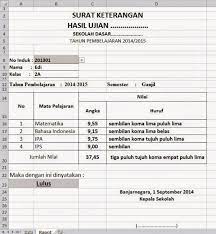 SURAT KETERANGAN
HASIL UJIAN ...................
SEKOLAH DASAR.....................
TAHUN PEMBELAJARAN 2014/2015
No Induk : 201301
Nama : Edi
Kelas : 2A
Tahun Pembelajaran : 2014/2015 Semester : Ganjil
No Mata Pelajaran Nilai
Angka Huruf
1 Matematika 9,55 sembilan koma lima puluh lima
2 Bahasa Indonesia 9,15 sembilan koma lima belas
3 IPA 9,75 sembilan koma tujuh puluh lima
4 IPS 9,00 sembilan koma
Jumlah Nilai 37,45 tiga puluh tujuh koma empat puluh lima
Maka dengan ini dinyatakan :
Lulus
Banjarnegara, 1 September 2014
Kepala Sekolah